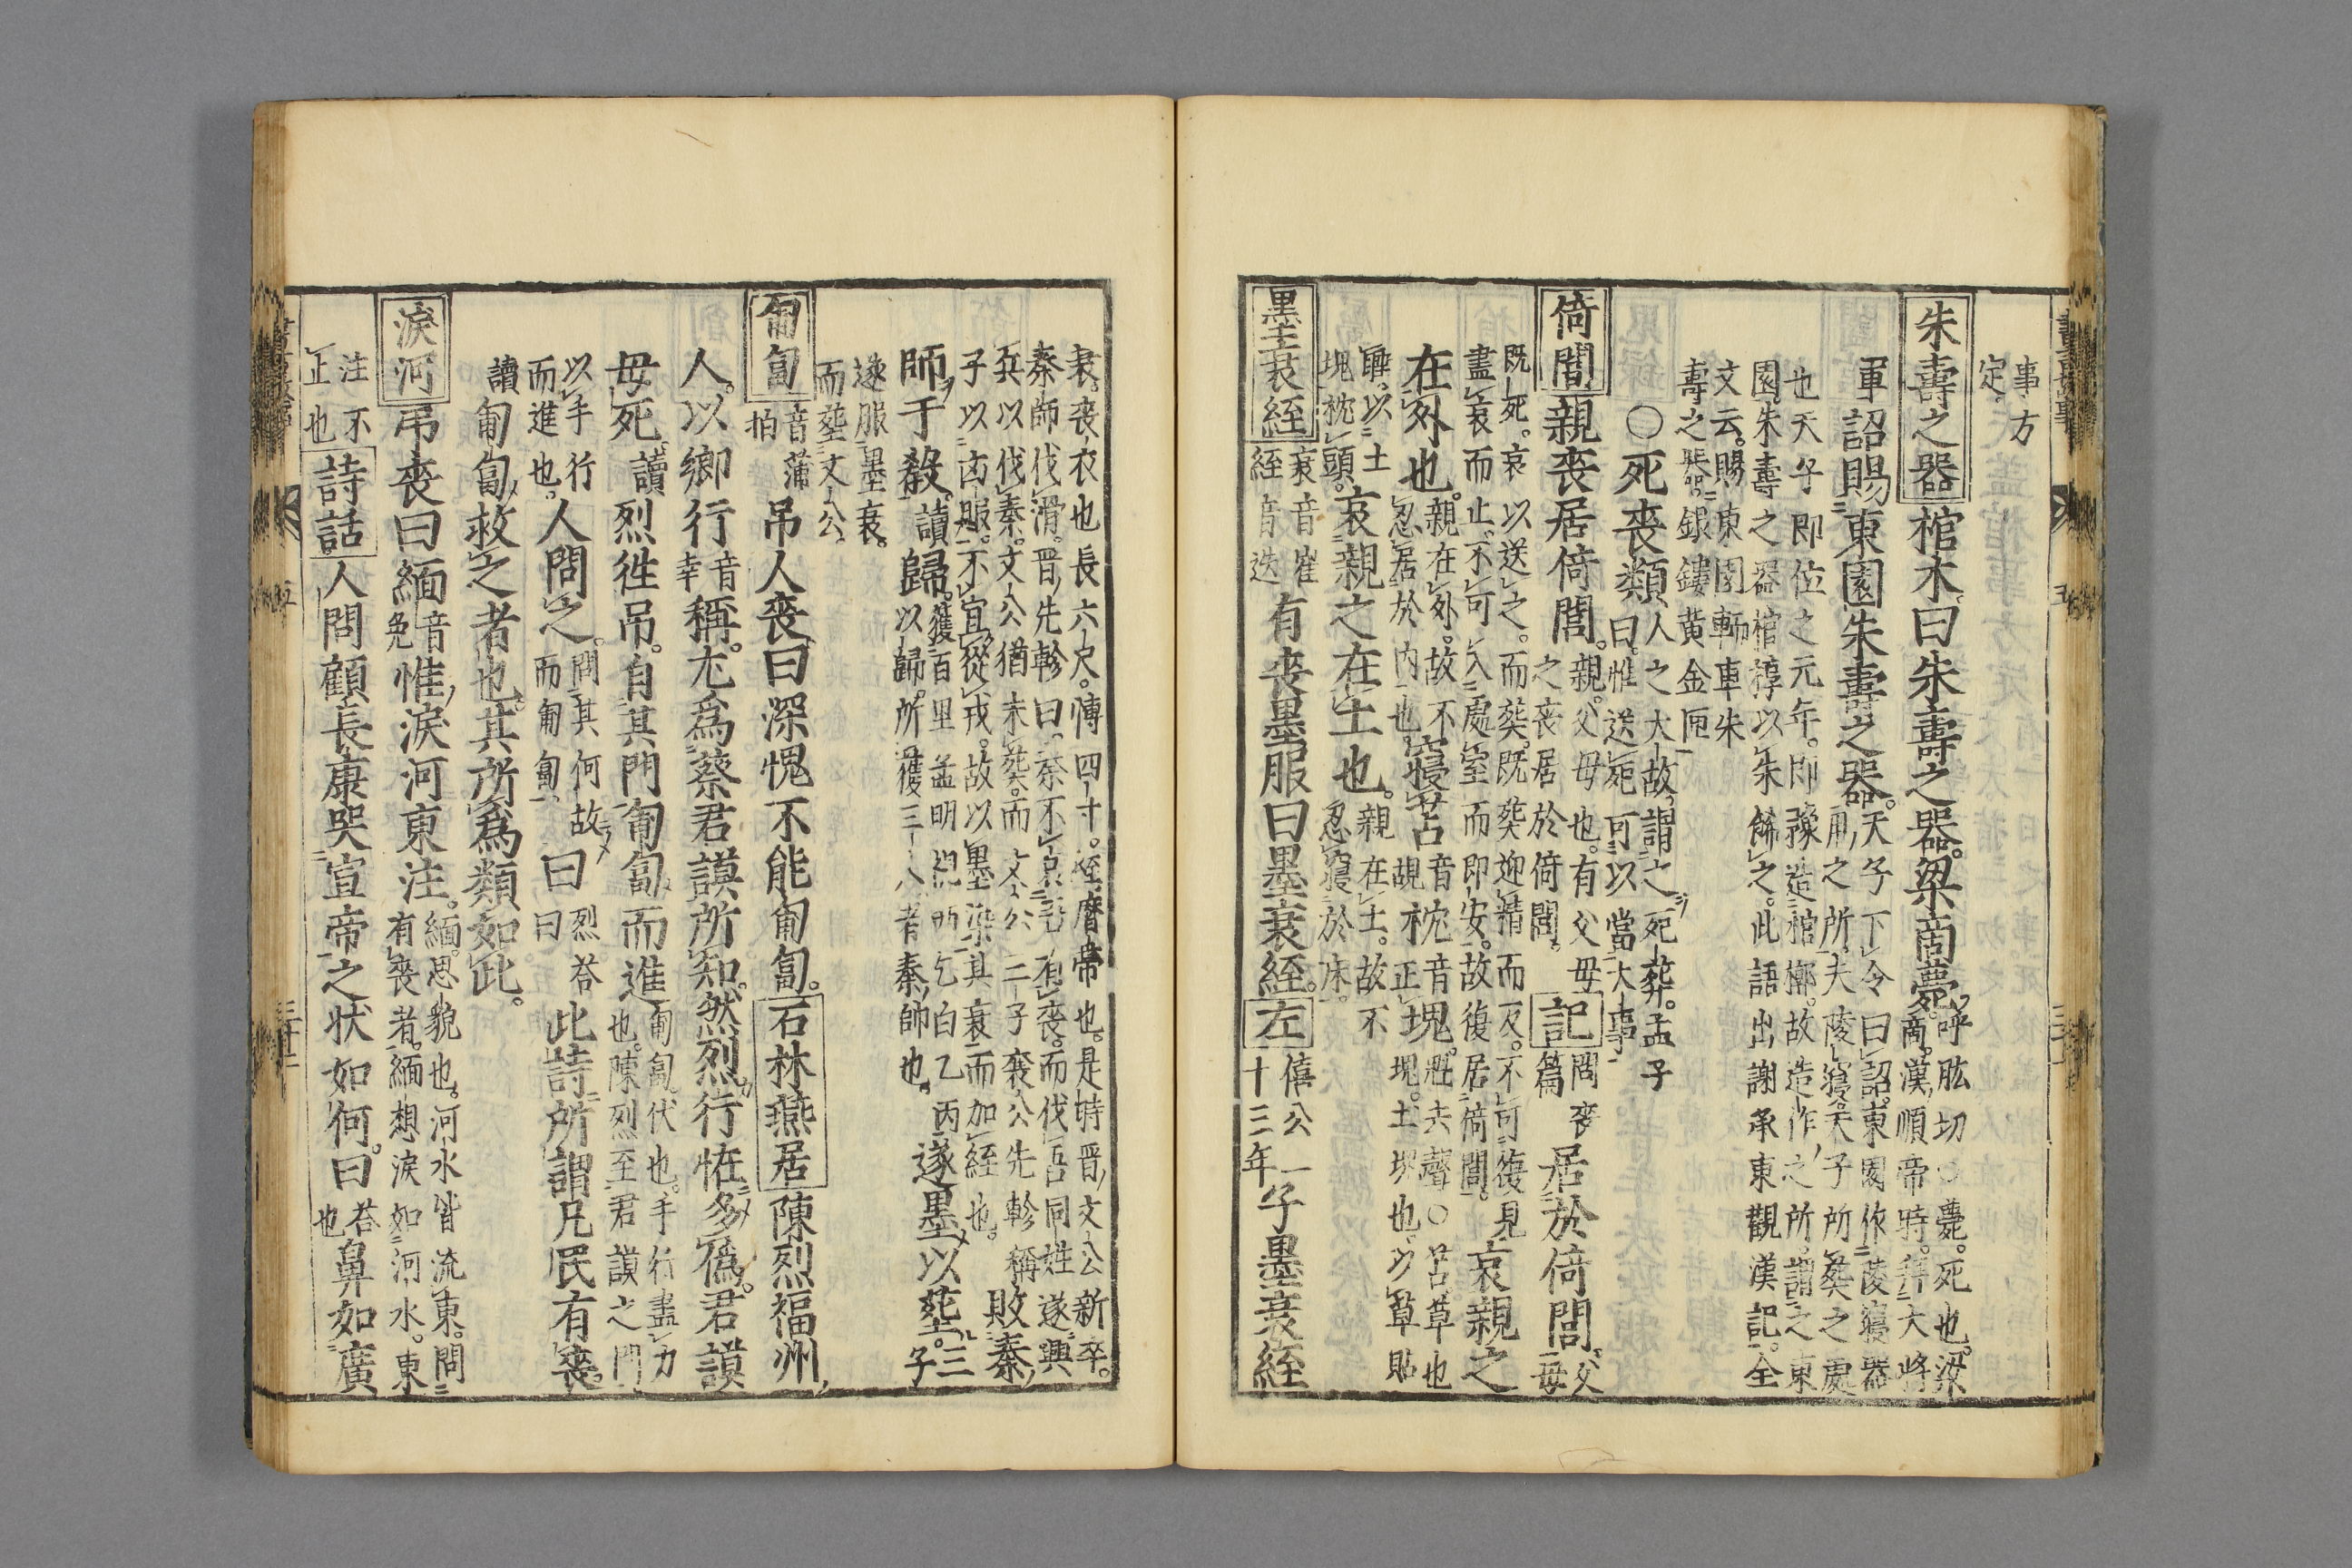 事方
定
朱壽之器 棺木曰朱壽之器梁商薨
呼肱切○薨死也梁
商漢順帝時拜大將
軍
詔賜東園朱壽之器
天子下令曰詔東園作陵寢器
用之所夫陵寢天子所葬之處
也天子即位之元年即豫造棺槨故造作之所謂之東
園朱壽之器棺椁以朱餙之此語出謝承東觀漢記全
文云賜東園轜車朱
壽之器銀鏤黄金匣
○死喪類
人之大故謂之死葬孟子
曰惟送死可以當大事
倚閭 親喪居倚閭
親父母也有父母
之喪居於倚閭
記
問喪
篇
居於倚閭
父
母
既死哀以送之而葬既葬迎精而反不可復見
盡哀而止不可入處室而即安故復居倚閭
哀親之
在外也
親在外故不
忍居於内也
寢苫
音
枕音塊
塊去聲○苫草也
塊土塊也以草貼
睡以土
塊枕頭
哀親之在土也
親在土故不
忍寢於床
墨衰絰
衰音崔
絰音迭
有喪墨服曰墨衰絰
左
僖公
十三年
子墨衰絰
衰喪衣也長六尺博四寸絰麻帶也是時晋文公新卒
秦師伐滑晋先軫曰秦不哀吾喪而伐吾同姓遂興
兵以伐秦文公猶未葬而文公二子襄公先軫稱
子以凶服不宜從戎故以墨染其衰而加絰也
敗秦
師于殽
讀
歸
獲百里孟明視西乞白乙丙
以歸所獲三人者秦帥也
遂墨以葬
三
子
遂服墨衰
而葬文公
匍匐
音蒲
拍
吊人喪曰深愧不能匍匐
石林燕居
陳烈福州
人以鄉行
音
幸
稱尤爲蔡君謨所知然烈行恠多僞君謨
母死
讀
烈徃吊自其門匍匐而進
匍匐伏也手行盡力
也陳烈至君謨之門
以手行
而進也
人問之
問其何故
而匍匐
曰
烈荅
曰
此詩所謂凡民有喪
讀
匍匐救之者也其所爲類如此
淚河 吊喪曰緬
音
免
惟淚河東注
緬思貌也河水皆流東問
有喪者緬想淚如河水東
注不
止也
詩話
人問顧長康哭宣帝之状如何曰
荅
也
鼻如廣